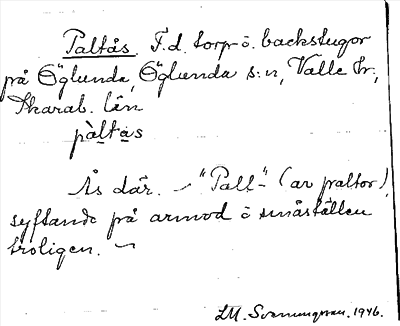 Paltås. F.d. torp o. backstugor
på Öglunda, Öglunda s:n, Valle hr.,
Skarab. län
pàltås
Ås där. – "Palt-" (av paltor)
syftande på armod å småställen
troligen. –
LM. Svenungsson. 1946.